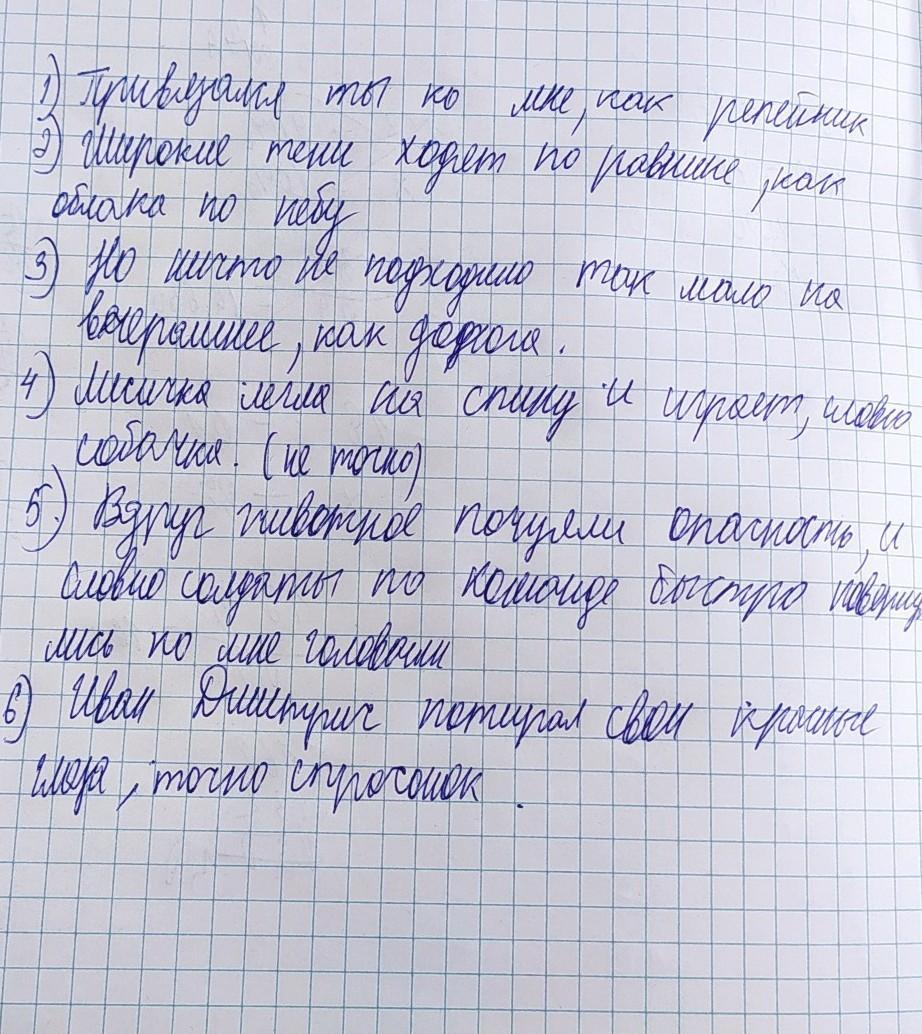 1) Привязался ты ко мне, как репейник
2) Широкие тени ходят по равнине, как
облака по небу
3) Но ничто не подходило так мало на
вчерашнее, как дорога.
4) Лисичка легла на спину и играет, словно
собачка. (не точно)
5) Вдруг животное почуяли опасность, и
словно солдаты по команде быстро поверну
лись ко мне головами
6) Иван Дмитрич потирал свои красные
глаза, точно спросонок.